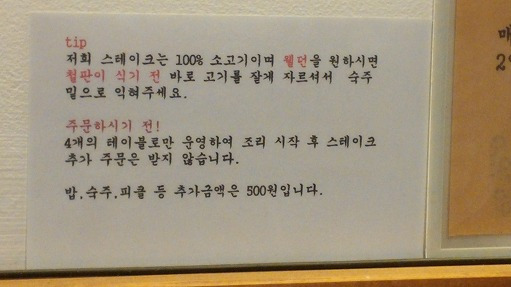 tip
저희 스테이크는 100% 소고기이며 웰던을 원하시면
철판이 식기 전 바로 고기를 잘게 자르셔서 숙주
밑으로 익혀주세요.
주문하시기 전!
4개의 테이블로만 운영하여 조리 시작 후 스테이크
추가 주문은 받지 않습니다.
밥,숙주,피클 등 추가금액은 500원입니다.